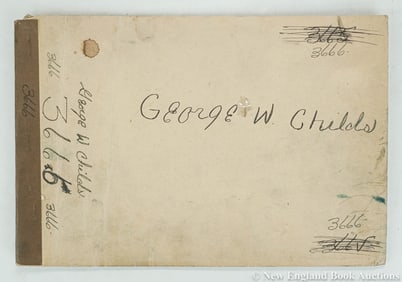 3666
George W. Childs
3666
3666
George W Childs
3666
3666
3666
© New England Book Auctions